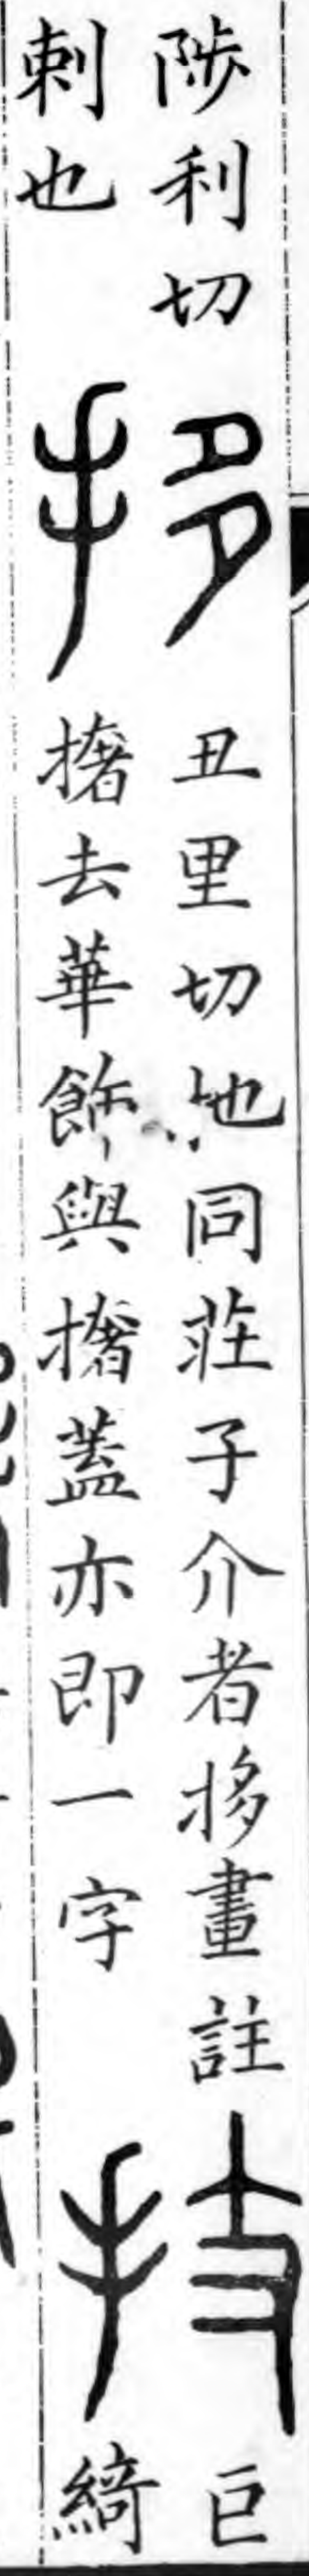 陟利切
刺也
拸
丑里切同荘子介者拸畫註
撦去華飾與撦蓋亦即一字
技
巨
綺